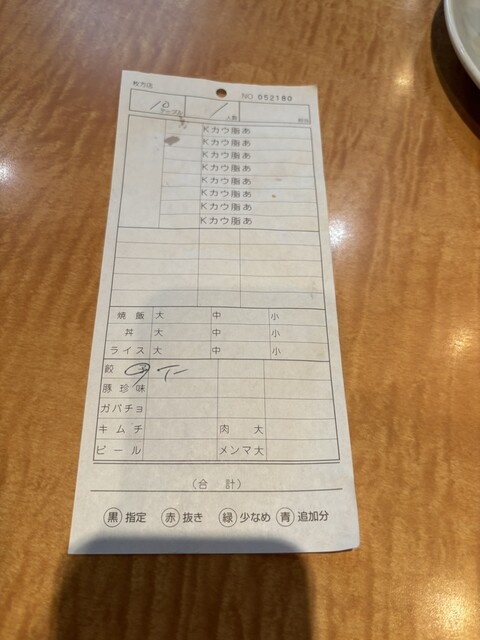 枚方店
NO 052180
10 テーブル 1 人数
Kカウ脂あ
Kカウ脂あ
Kカウ脂あ
Kカウ脂あ
Kカウ脂あ
Kカウ脂あ
Kカウ脂あ
Kカウ脂あ
焼飯 大 中 小
丼 大 中 小
ライス 大 中 小
餃子
豚珍味
ガパチョ
キムチ 肉大
ビール メンマ大
(合計)
黒 指定 赤 抜き 緑 少なめ 青 追加分